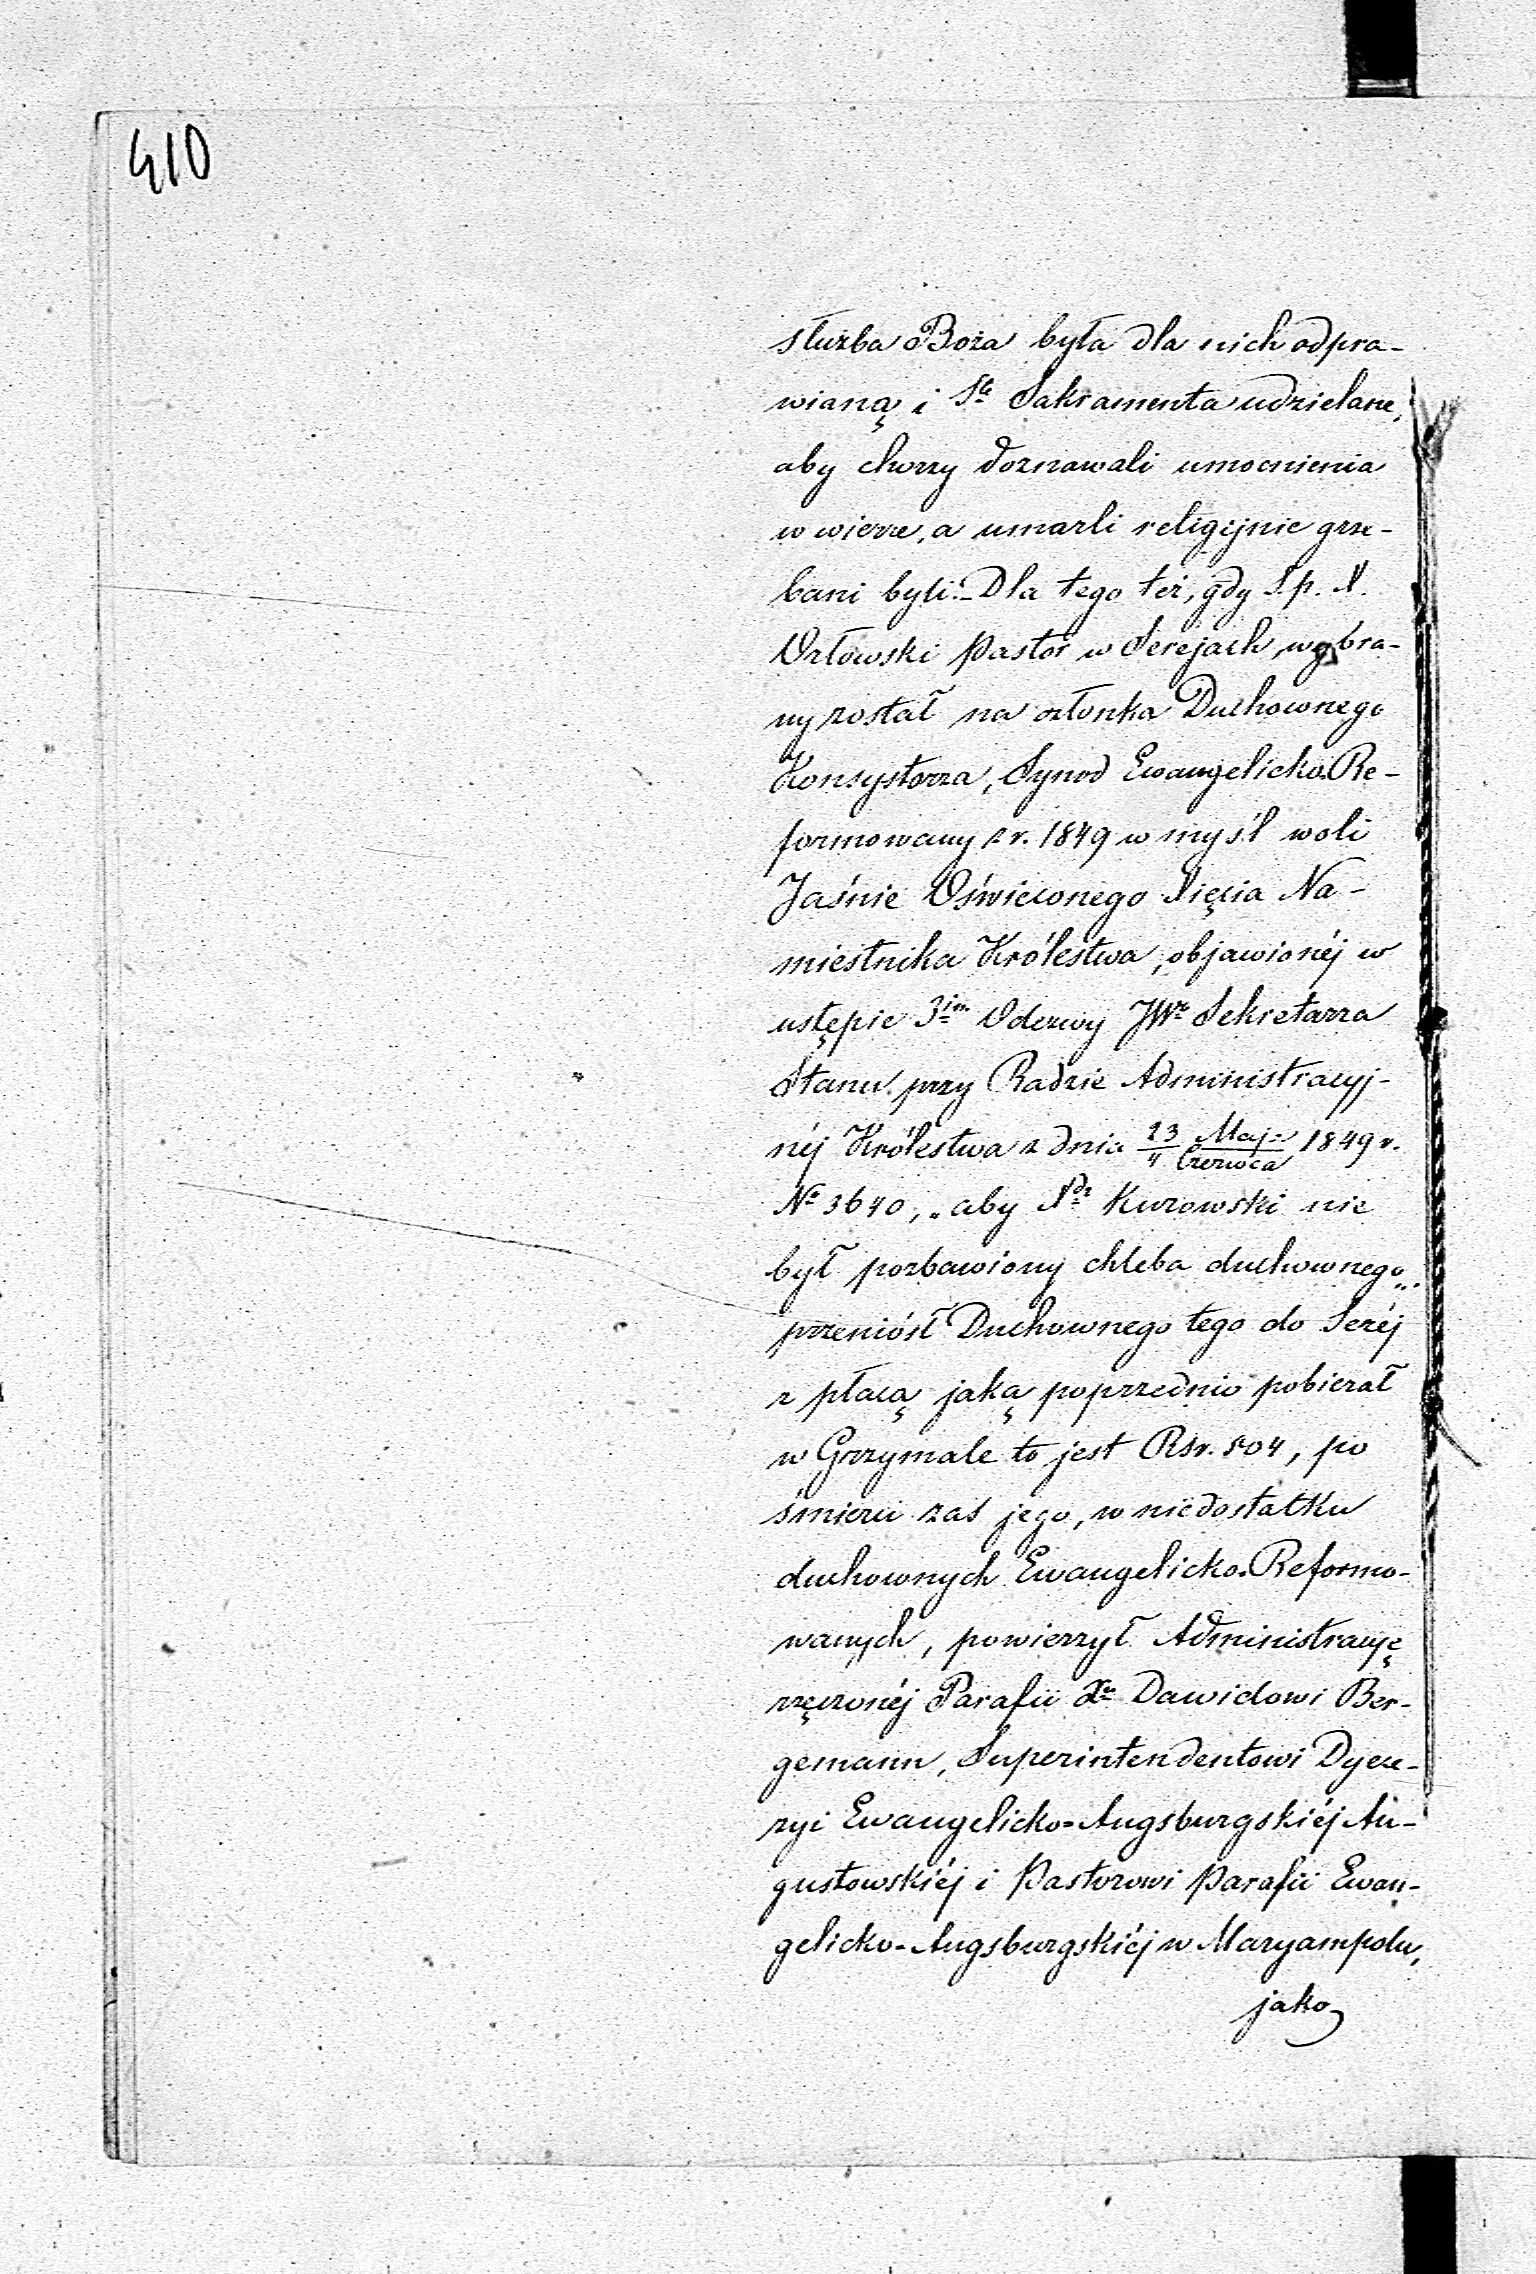 410
służba Boża była dla nich odpra-
wianą i Ste Sakramenta udzielane,
aby chorzy doznawali umocnienia
w wierze, a umarli religijnie grze-
bani byli. Dla tego też, gdy Ś.p. X.
Orłowski Pastor w Serejach, wybra-
ny został na członka Duchownego
Konsystorza, Synod Ewangelicko-Re-
formowany z r. 1849 w myśl woli
Jaśnie Oświeconego Xięcia Na-
miestnika Królestwa, objawionéj w
ustępie 3im Odezwy JWo Sekretarza
Stanu przy Radzie Administracyj-
néj Królestwa z dnia 23 Maja / 4 Czerwca 1849 r.
No 3640, „aby Xdz Kurowski nie
był pozbawiony chleba duchownego„
przeniósł Duchownego tego do Seréj
z płacą jaką poprzednio pobierał
w Grzymale to jest Rsr. 504, po
śmierci zaś jego, w niedostatku
duchownych Ewangelicko-Reformo-
wanych, powierzył Administracyę
rzęczonéj Parafii Xu Dawidowi Ber-
gemann, Superintendentowi Dyece-
zyi Ewangelicko-Augsburgskiéj Au-
gustowskiéj i Pastorowi Parafii Ewan-
gelicko-Augsburgskiéj w Maryampolu,
jako